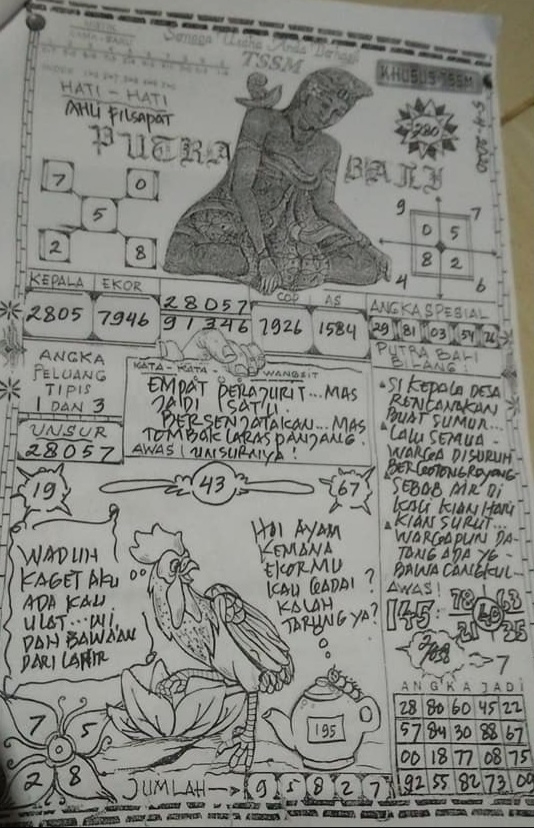 Semoga Usaha Anda Berhasil
TSSM
KHUSUS TSSM
HATI - HATI
AHLI FILSAPAT
PUTRA
BALI
280
7 0
5
2 8
9 7
0 5
8 2
4 6
KEPALA EKOR
2805 7946
28057
91346
COP AS
7926 1584
ANGKA SPESIAL
29 81 03 54 76
ANGKA
PELUANG
TIPIS
1 DAN 3
UNSUR
28057
KATA - KATA WANGSIT
EMPAT PERAJURIT... MAS
JADI 1 SATU.
BERSENJATAKAN... MAS
TOMBAK LARAS PANJANG.
AWAS! UNSURNIYA!
PUTRA BALI
BILANG:
SI KEPALA DESA
RENCANAKAN
BUAT SUMUR...
LALU SEMUA -
WARGA DISURUH
BERGOTONG ROYONG
SEBAB AIR DI
KALI KIAN HARI
KIAN SURUT...
WARGAPUN DA-
TANG ADA YG -
BAWA CANGKUL -
AWAS!
145:
78 63
40
21 35
7
19
43
67
WADUH
KAGET AKU
ADA KAU
ULAT... UI,
DAH BAWAAN
DARI LAHIR
HOI AYAM
KEMANA
EKORMU
KAU GADAI ?
KALAH
TARUNG YA?
195
7 5
2 8
JUMLAH
9 5 8 2 7
ANGKA JADI
28 80 60 45 22
57 84 30 88 67
00 18 77 08 75
92 55 82 73 00